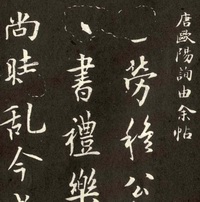 唐歐陽詢由余帖
勞穆公
書禮樂
尚時乱今